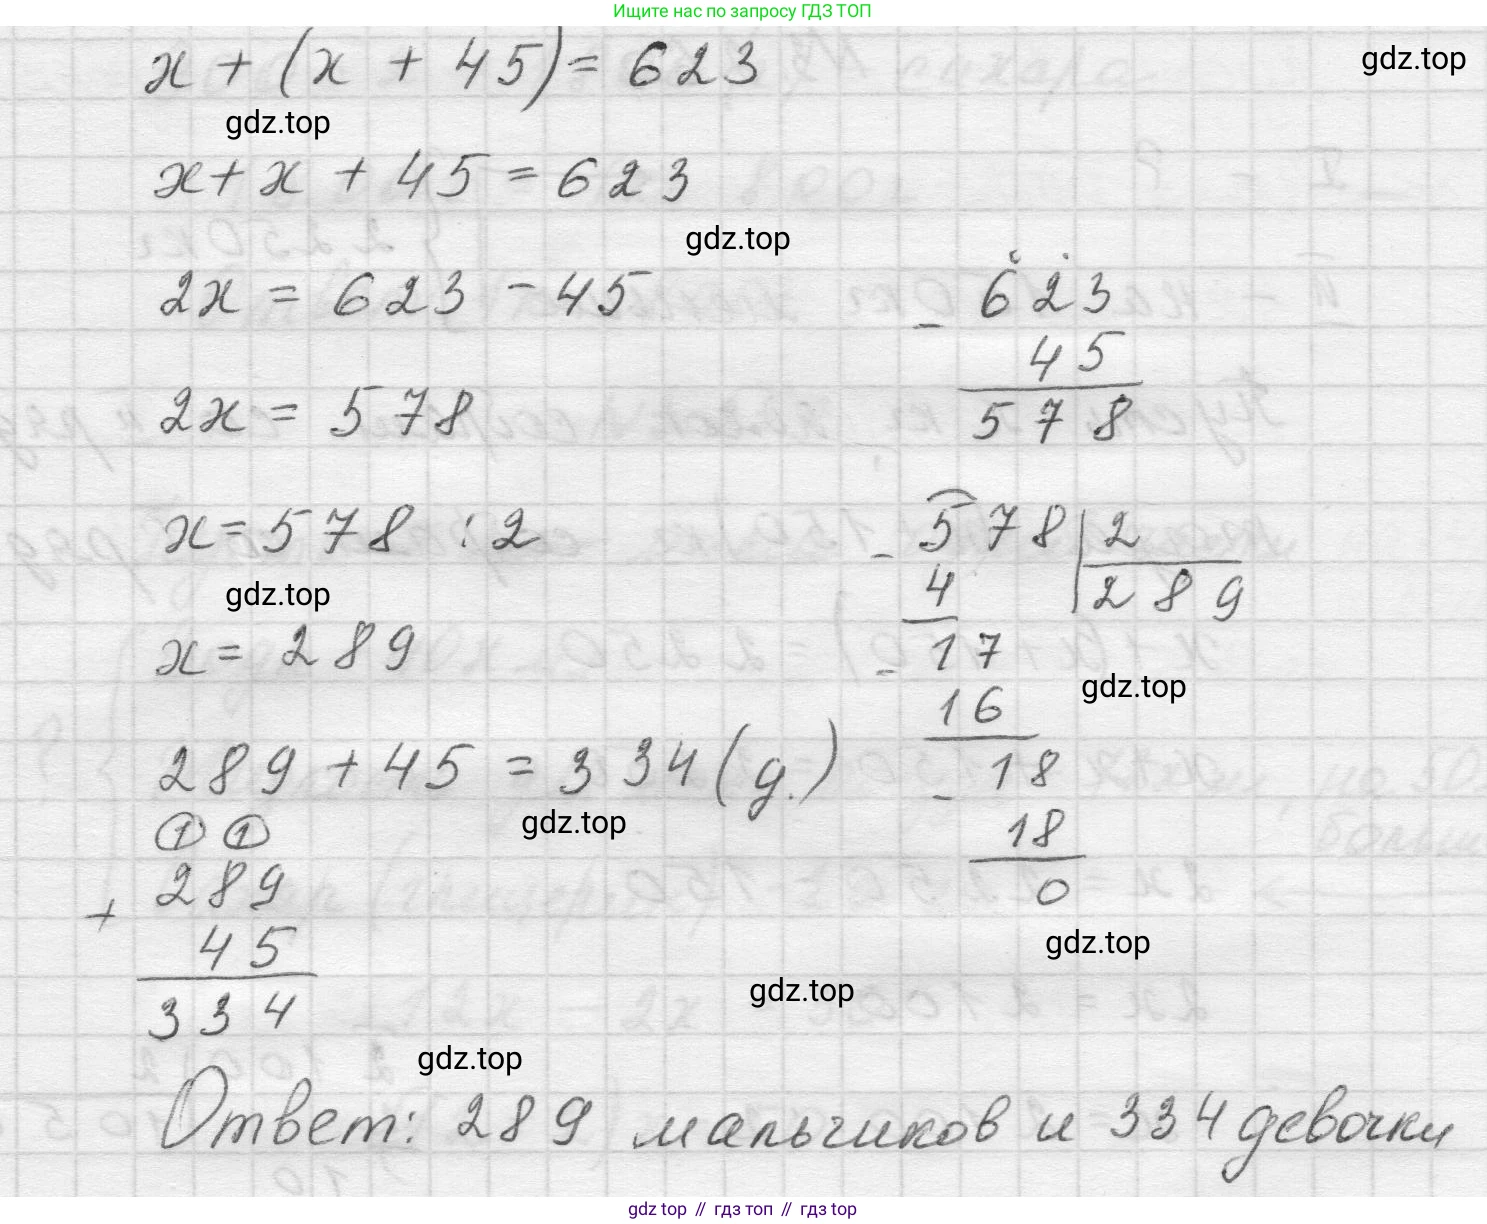 Ищите нас по запросу ГДЗ ТОП
x + (x + 45) = 623
gdz.top
gdz.top
x + x + 45 = 623
gdz.top
2x = 623 - 45
- 623
45
578
2x = 578
x = 578 : 2
- 578 | 2
289
4
- 17
16
- 18
18
0
gdz.top
x = 289
gdz.top
289 + 45 = 334 (д.)
gdz.top
1 1
+ 289
45
334
gdz.top
gdz.top
gdz.top
Ответ: 289 мальчиков и 334 девочки
gdz top // гдз топ // гдз top